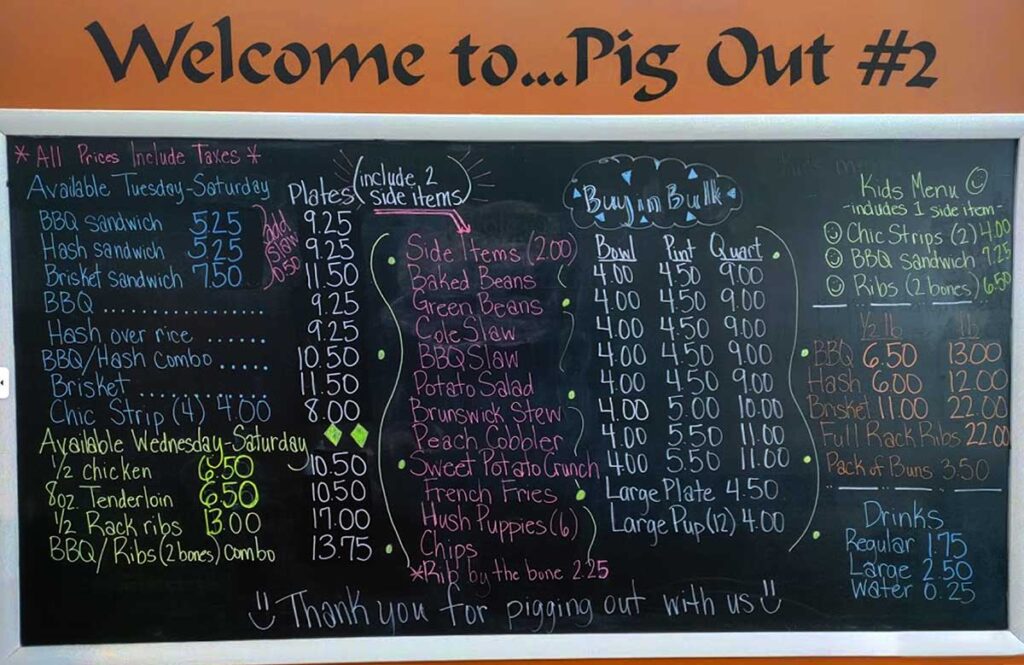 Welcome to...Pig Out #2
*All Prices Include Taxes*
Available Tuesday-Saturday
Plates (include 2 side items)
BBQ sandwich 5.25 9.25
Hash sandwich 5.25 9.25
Brisket sandwich 7.50 11.50
add slaw 0.50
BBQ .................. 9.25
Hash over rice ...... 9.25
BBQ/Hash combo ..... 10.50
Brisket .............. 11.50
Chic Strip (4) 4.00 8.00
Available Wednesday-Saturday
1/2 chicken 6.50 10.50
8oz. Tenderloin 6.50 10.50
1/2 Rack ribs 13.00 17.00
BBQ/Ribs (2 bones) combo 13.75
Side Items (2.00)
Baked Beans
Green Beans
Cole Slaw
BBQ Slaw
Potato Salad
Brunswick Stew
Peach Cobbler
Sweet Potato Crunch
French Fries
Hush Puppies (6)
Chips
*Rib by the bone 2.25
Buy in Bulk
Bowl Pint Quart
4.00 4.50 9.00
4.00 4.50 9.00
4.00 4.50 9.00
4.00 4.50 9.00
4.00 4.50 9.00
4.00 5.00 10.00
4.00 5.50 11.00
4.00 5.50 11.00
Large Plate 4.50
Large Pup (12) 4.00
Kids Menu
-includes 1 side item-
Chic Strips (2) 4.00
BBQ sandwich 7.25
Ribs (2 bones) 6.50
1/2 lb lb
BBQ 6.50 13.00
Hash 6.00 12.00
Brisket 11.00 22.00
Full Rack Ribs 22.00
Pack of Buns 3.50
Drinks
Regular 1.75
Large 2.50
Water 0.25
Thank you for pigging out with us